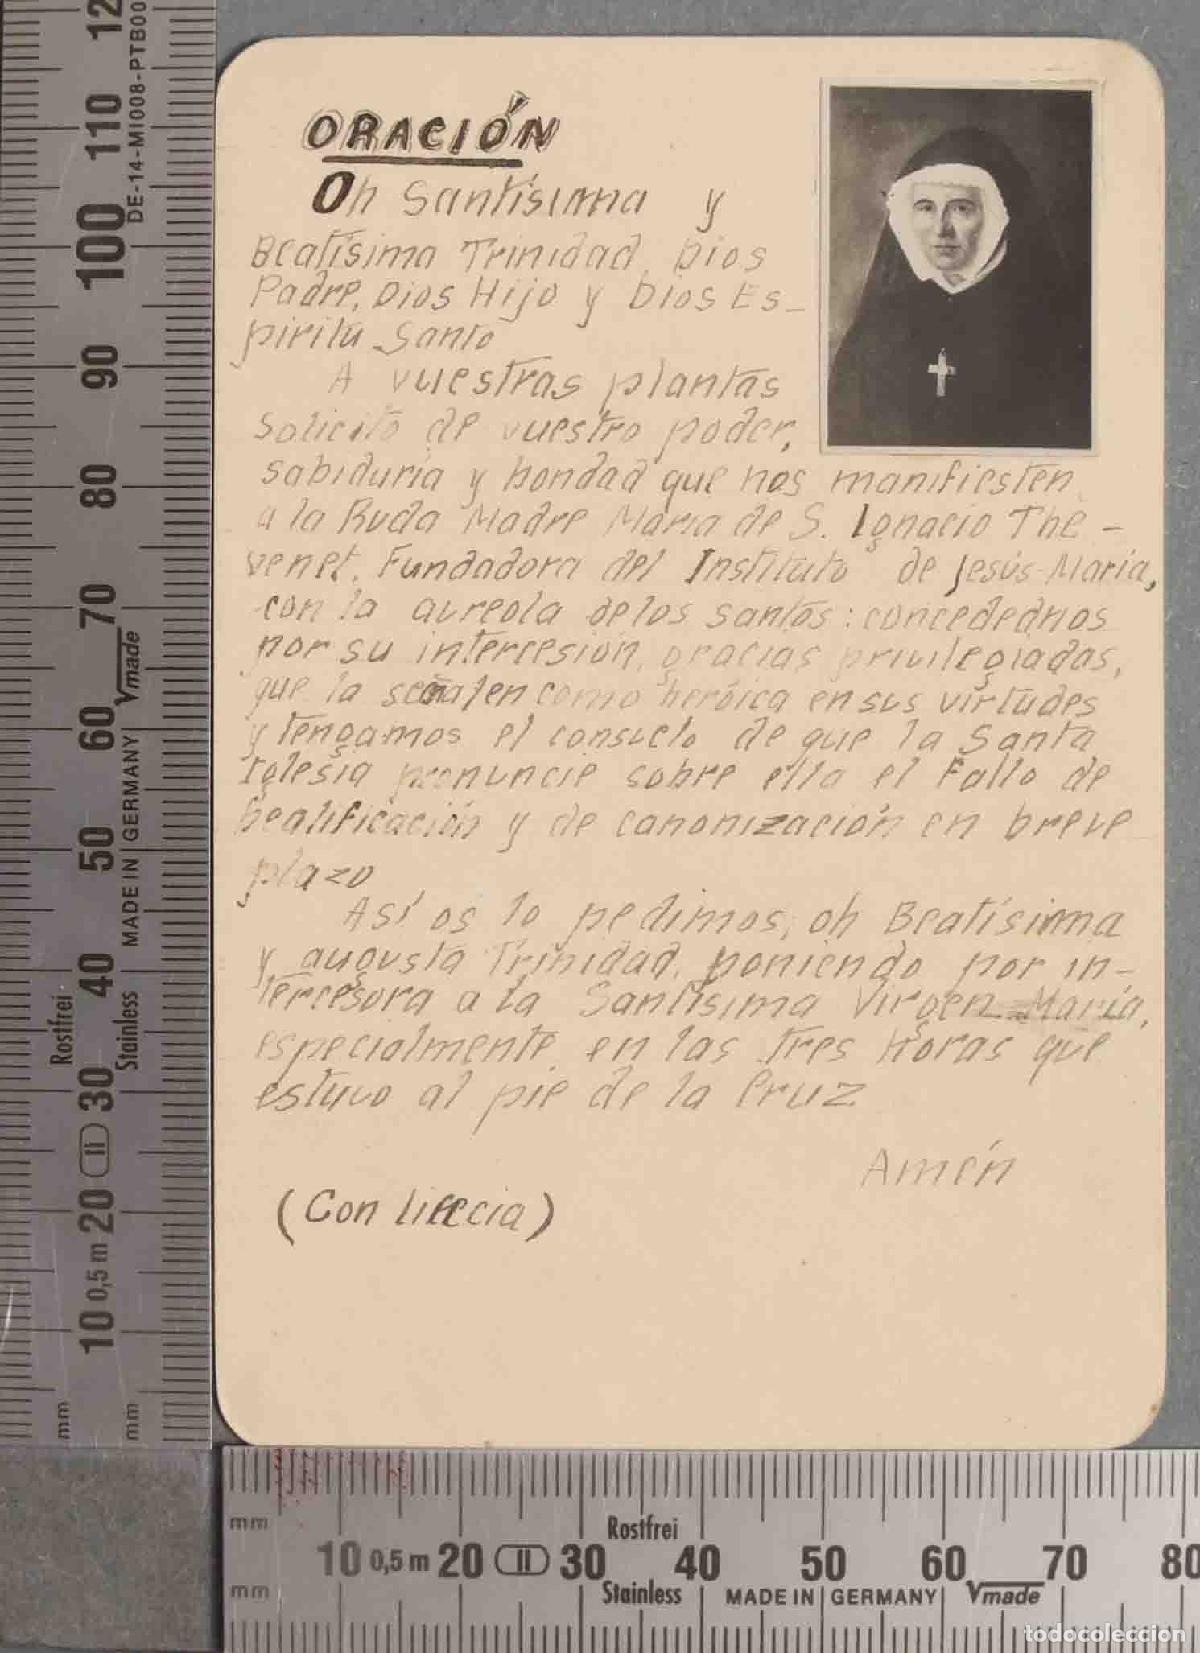 ORACIÓN
Oh Santísima y
Beatísima Trinidad, Dios
Padre, Dios Hijo y Dios Es-
piritu Santo
A vuestras plantas
solicito de vuestro poder,
sabiduría y bondad que nos manifiesten
a la Rvda Madre María de S. Ignacio The-
venet. Fundadora del Instituto de Jesús-María,
con la aureola de los santos: concedednos
por su intercesión, gracias privilegiadas,
que la señalen como heróica en sus virtudes
y tengamos el consuelo de que la Santa
Iglesia pronuncie sobre ella el Fallo de
beatificación y de canonización en breve
plazo
Así os lo pedimos, oh Beatísima
y augusta Trinidad, poniendo por in-
tercesora a la Santísima Virgen María,
especialmente en las tres horas que
estuvo al pie de la Cruz
Amén
(Con licecia)
DE-14-MI008-PTB00
12
110
100
90
80
70
60
50
40
30
20
0,5 m
10
mm
mm
II
Rostfrei
Stainless
MADE IN GERMANY
Vmade
mm
mm
10 0,5 m 20 II 30 40 50 60 70 80
Rostfrei
Stainless MADE IN GERMANY Vmade
todocoleccion